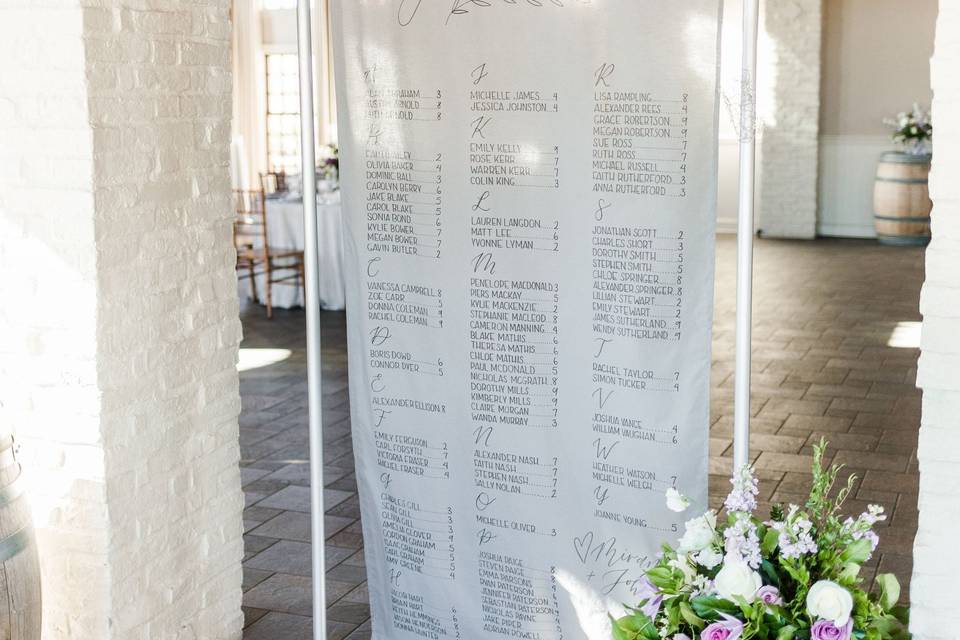 A
ALAN ABRAHAM 3
ARNOLD 8
ARNOLD 8
B
BAILEY 2
OLIVIA BAKER 4
DOMINIC BALL 3
CAROLYN BERRY 6
JAKE BLAKE 5
CAROL BLAKE 5
SONIA BOND 6
KYLIE BOWER 7
MEGAN BOWER 7
GAVIN BUTLER 2
C
VANESSA CAMPBELL 8
ZOE CARR 5
DONNA COLEMAN 9
RACHEL COLEMAN 9
D
BORIS DOWD 6
CONNOR DYER 5
E
ALEXANDER ELLISON 8
F
EMILY FERGUSON 2
CARL FORSYTH 7
VICTORIA FRASER 4
FRASER 4
G
CHARLES GILL 3
SEAN GILL 3
OLIVIA GILL 3
AMELIA GLOVER 3
GORDON GRAHAM 5
ISAAC GRAHAM 5
CARL GRAHAM 5
AMY GREENE 4
H
JACOB HART
BRIAN HART 6
KEITH HEMMINGS 6
JASON HENDERSON
DONNA HUNTER
J
MICHELLE JAMES 4
JESSICA JOHNSTON 4
K
EMILY KELLY 9
ROSE KERR 7
WARREN KERR 7
COLIN KING 3
L
LAUREN LANGDON 2
MATT LEE 6
YVONNE LYMAN 2
M
PENELOPE MACDONALD 3
PIERS MACKAY 5
KYLIE MACKENZIE 2
STEPHANIE MACLEOD 8
CAMERON MANNING 4
BLAKE MATHIS 6
THERESA MATHIS 6
CHLOE MATHIS 6
PAUL MCDONALD 5
NICHOLAS MCGRATH 8
DOROTHY MILLS 9
KIMBERLY MILLS 9
CLAIRE MORGAN 7
WANDA MURRAY 3
N
ALEXANDER NASH 7
FAITH NASH 7
STEPHEN NASH 7
SALLY NOLAN 2
O
MICHELLE OLIVER 3
P
JOSHUA PAIGE
STEVEN PAIGE 8
EMMA PARSONS 8
RYAN PATERSON
JENNIFER PATERSON
SEBASTIAN PATERSON
NICHOLAS PAYNE
JAKE PIPER
ADRIAN POWELL
R
LISA RAMPLING 8
ALEXANDER REES 4
GRACE ROBERTSON 9
MEGAN ROBERTSON 9
SUE ROSS 7
RUTH ROSS 7
MICHAEL RUSSELL 4
FAITH RUTHERFORD 3
ANNA RUTHERFORD 3
S
JONATHAN SCOTT 2
CHARLES SHORT 3
DOROTHY SMITH 5
STEPHEN SMITH 5
CHLOE SPRINGER 8
ALEXANDER SPRINGER 8
LILLIAN STEWART 2
EMILY STEWART 2
JAMES SUTHERLAND 9
WENDY SUTHERLAND 9
T
RACHEL TAYLOR 7
SIMON TUCKER 4
V
JOSHUA VANCE 4
WILLIAM VAUGHAN 6
W
HEATHER WATSON 7
MICHELLE WELSH 7
Y
JOANNE YOUNG 5